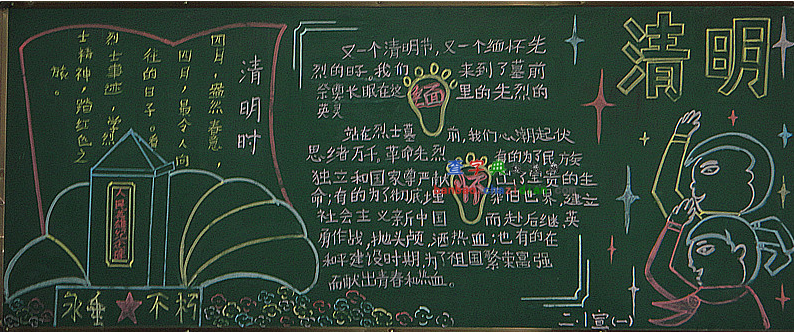 清明
清明时
四月，盎然春意，
四月，最令人向
往的日子。看
烈士事迹，学烈
士精神，踏红色之
旅。
又一个清明节，又一个缅怀先
烈的日子。我们来到了墓前
祭奠长眠在这里的先烈的
英灵
缅
怀
站在烈士墓前，我们心潮起伏
思绪万千，革命先烈有的为了民族
独立和国家尊严献出了宝贵的生
命；有的为了彻底埋葬旧世界，建立
社会主义新中国而赴后继，英
勇作战，抛头颅，洒热血；也有的在
和平建设时期，为了祖国繁荣富强
而献出青春和热血。
人民英雄纪念碑
永垂★不朽
二.1宣(一)